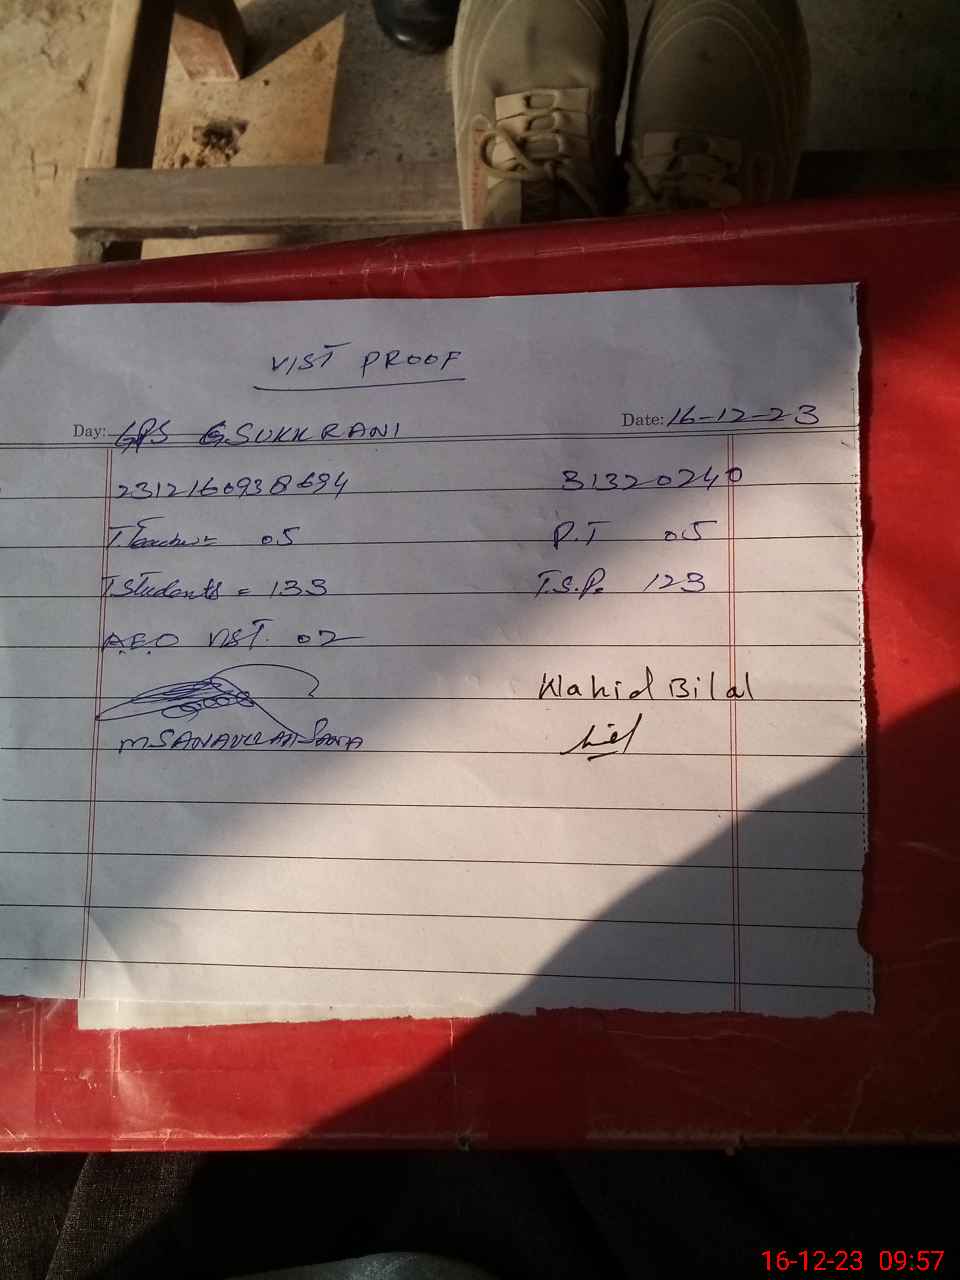 VIST PROOF
Day: GPS G.SUKKRANI Date: 16-12-23
2312160938694 31320240
T.Teacher= 05 P.T 05
T.Students = 133 T.S.P. 123
A.E.O VIST. 02
Wahid Bilal
M SANAULLAH
16-12-23 09:57